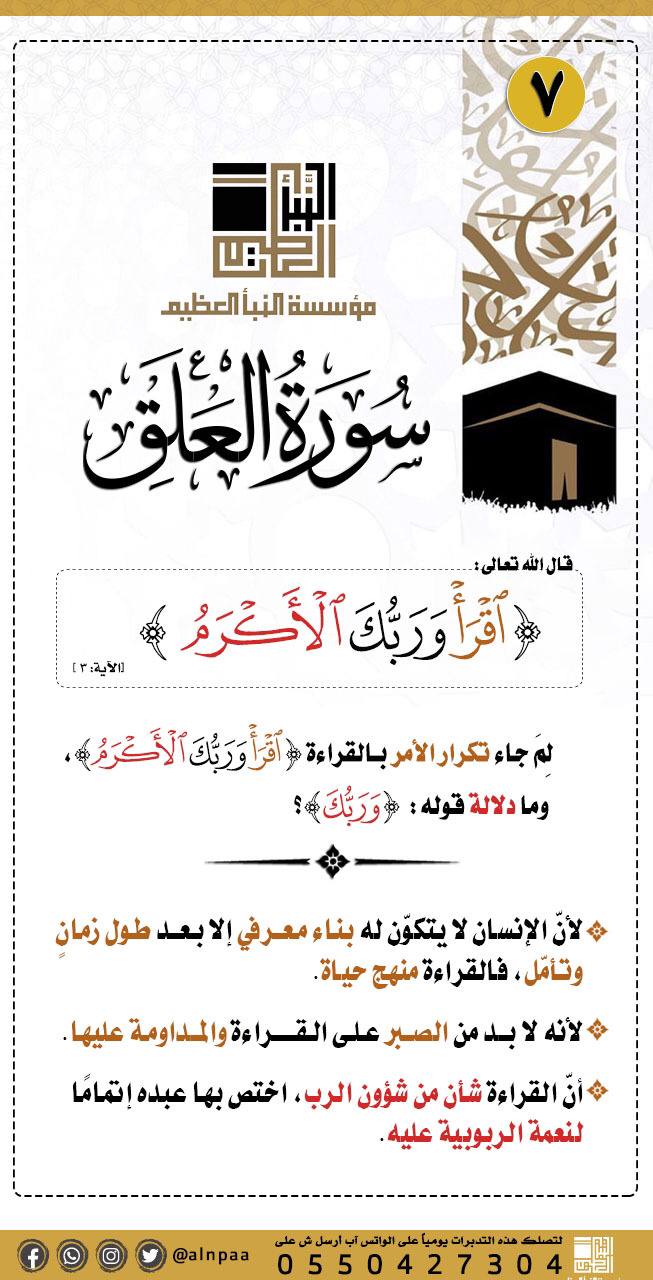 ٧
النبأ العظيم
مؤسسة النبأ العظيم
سُورَةُ العَلَقِ
قال الله تعالى:
﴿ ٱقۡرَأۡ وَرَبُّكَ ٱلۡأَكۡرَمُ ﴾
[الآية: ٣]
لِمَ جاء تكرار الأمر بالقراءة ﴿ٱقۡرَأۡ وَرَبُّكَ ٱلۡأَكۡرَمُ﴾،
وما دلالة قوله: ﴿وَرَبُّكَ﴾؟
لأنّ الإنسان لا يتكوّن له بناء معرفي إلا بعد طول زمانٍ
وتأمّل، فالقراءة منهج حياة.
لأنه لا بد من الصبر على القراءة والمداومة عليها.
أنّ القراءة شأن من شؤون الرب، اختص بها عبده إتمامًا
لنعمة الربوبية عليه.
لتصلك هذه التدبرات يومياً على الواتس آب ارسل ش على
0550427304
@alnpaa